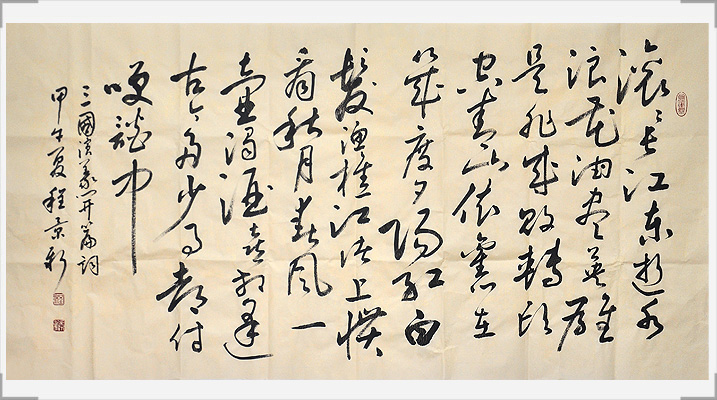 滚滚长江东逝水
浪花淘尽英雄
是非成败轉头
空青山依舊在
幾度夕陽红白
髮渔樵江渚上惯
看秋月春风一
壶濁酒喜相逢
古今多少事都付
咲談中
三國演義開篇词
甲午夏程京新